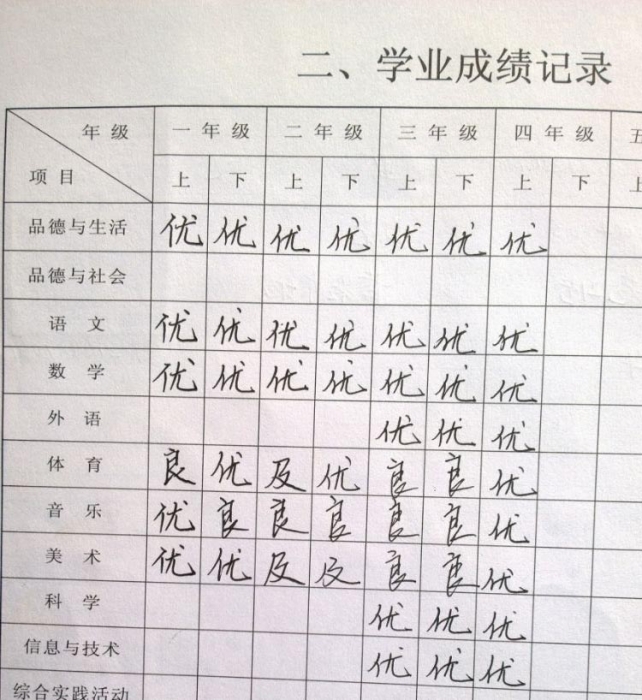 二、学业成绩记录
年级 一年级 二年级 三年级 四年级 五
项目 上 下 上 下 上 下 上 下 上
品德与生活 优 优 优 优 优 优 优
品德与社会
语文 优 优 优 优 优 优 优
数学 优 优 优 优 优 优 优
外语 优 优 优
体育 良 优 及 优 良 良 优
音乐 优 良 良 良 良 良 优
美术 优 优 及 及 良 良 优
科学 优 优 优
信息与技术 优 优 优
综合实践活动